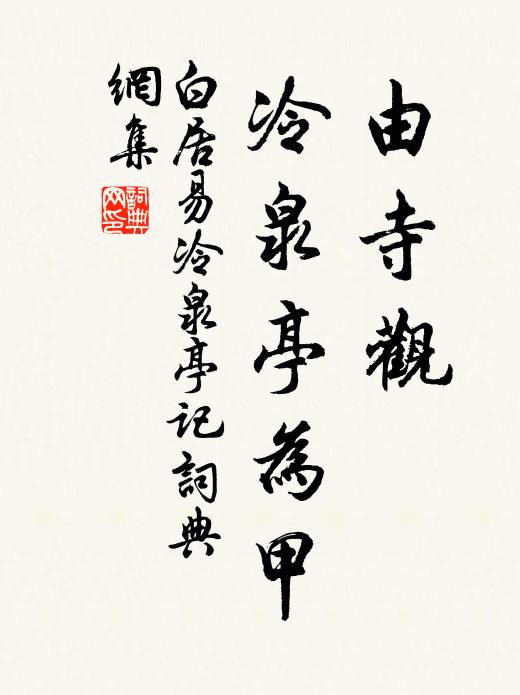 由寺觀
冷泉亭為甲
白居易冷泉亭記詞典
網集
詞典
网印